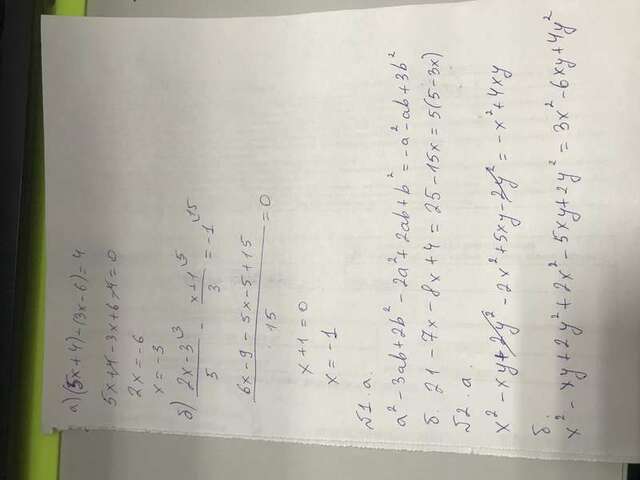 а) (5x+4)-(3x-6)=4
5x+4-3x+6-4=0
2x=-6
x=-3
б) (2x-3)/5 ³ - (x+1)/3 ⁵ = -1 ¹⁵
(6x-9-5x-5+15)/15 = 0
x+1=0
x=-1
№1. а.
a²-3ab+2b²-2a²+2ab+b²=-a²-ab+3b²
б. 21-7x-8x+4=25-15x=5(5-3x)
№2. а.
x²-xy+2y²-2x²+5xy-2y²=-x²+4xy
б.
x²-xy+2y²+2x²-5xy+2y²=3x²-6xy+4y²